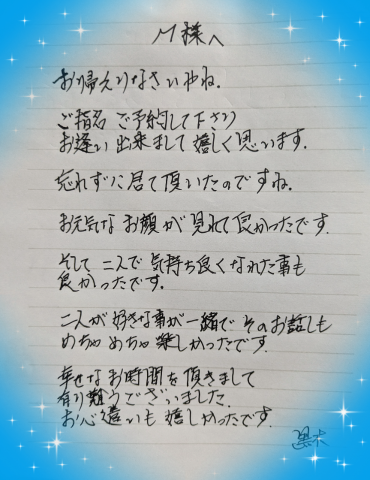 M様へ
お帰えりなさいやね。
ご指名 ご予約して下さり
お逢い出来まして嬉しく思います。
忘れずに居て頂いたのですね。
お元気な お顔が 見れて 良かったです。
そして 二人で 気持ち良くなれた事も
良かったです。
二人が 好きな事が 一緒で そのお話しも
めちゃめちゃ楽しかったです。
幸せな お時間を 頂きまして
有り難うございました。
お心遣いも 嬉しかったです。
黒木